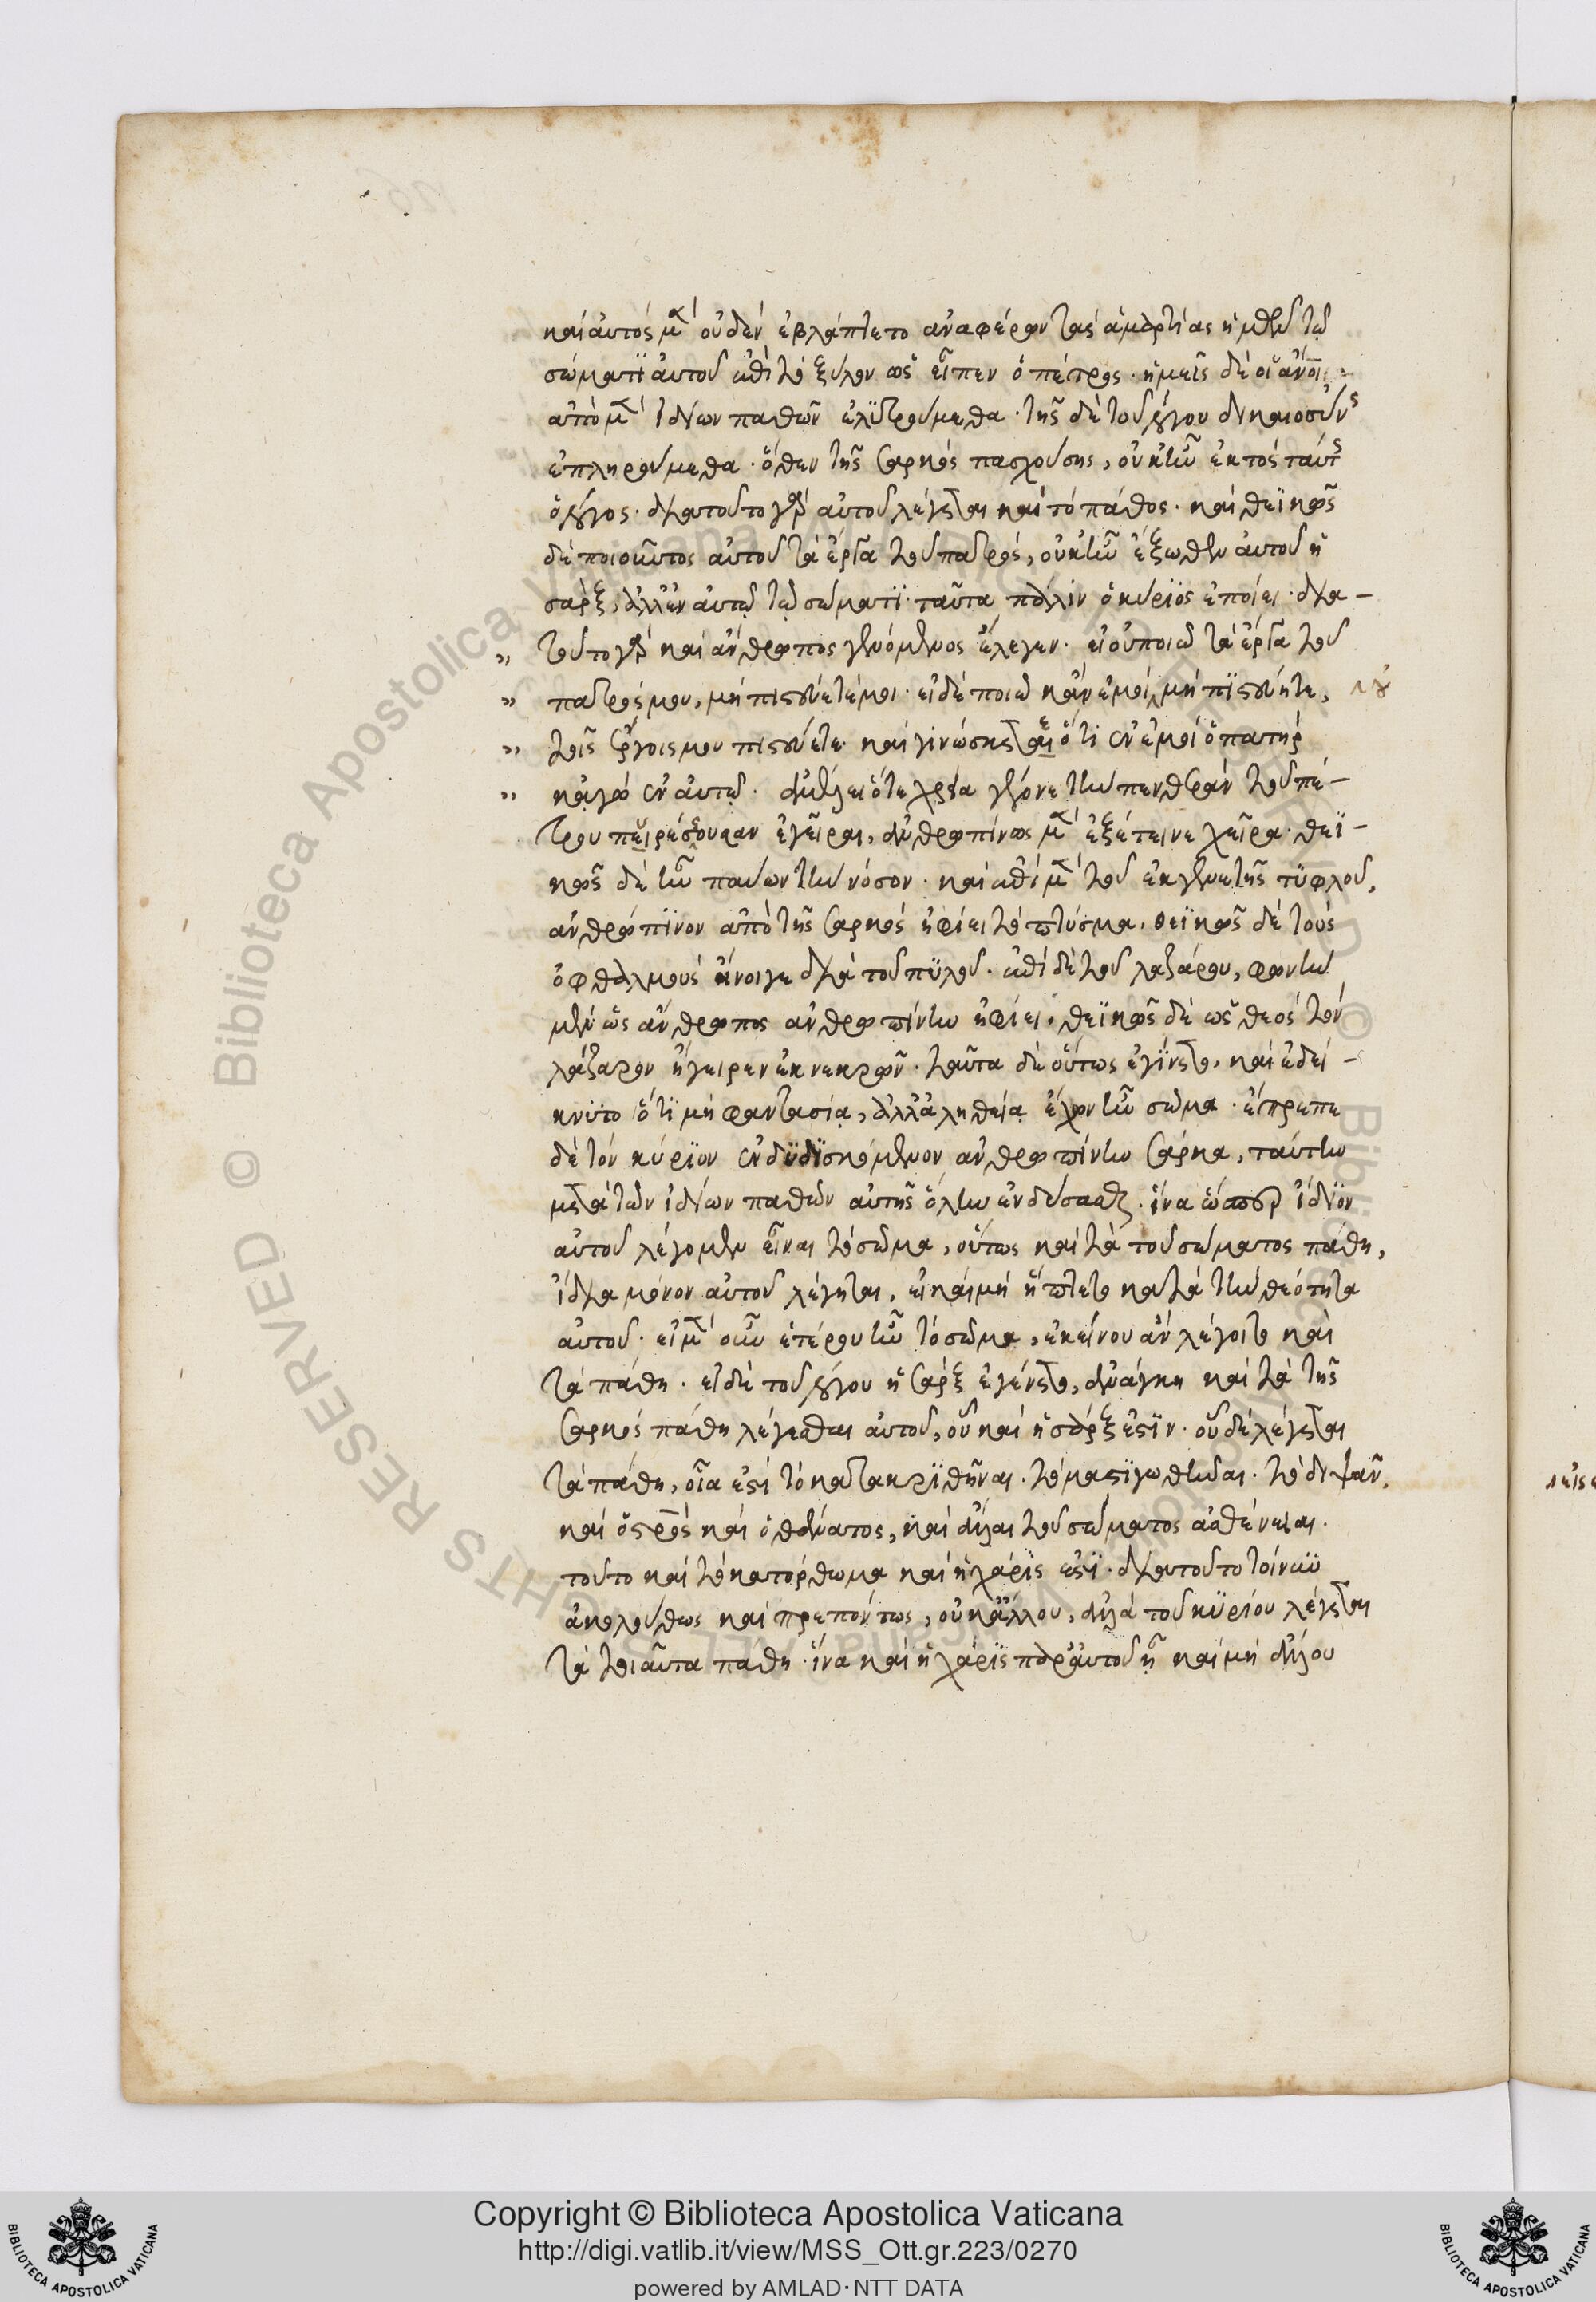 καὶ αὐτὸς μὲν οὐδὲν ἐβλάπτετο ἀναφέρων τὰς ἁμαρτίας ἡμῶν τῷ
σώματι αὐτοῦ ἐπὶ τὸ ξύλον ὡς εἶπεν ὁ πέτρος· ἡμεῖς δὲ οἱ ἄνοι,
ἀπὸ μὲν ἰδίων παθῶν ἐλυτρούμεθα· τῆς δὲ τοῦ λόγου δικαιοσύνης
ἐπληρούμεθα· ὅθεν τῆς σαρκὸς πασχούσης, οὐκ ἦν ἐκτὸς ταύτης
ὁ λόγος· διὰ τοῦτο γὰρ αὐτοῦ λέγεται καὶ τὸ πάθος· καὶ θεϊκῶς
δὲ ποιοῦντος αὐτοῦ τὰ ἔργα τοῦ πατρός, οὐκ ἦν ἔξωθεν αὐτοῦ ἡ
σάρξ, ἀλλ' ἐν αὐτῷ τῷ σώματι ταῦτα πάλιν ὁ κύριος ἐποίει· δια-
" τοῦτο γὰρ καὶ ἄνθρωπος γενόμενος ἔλεγεν· εἰ οὐ ποιῶ τὰ ἔργα τοῦ
" πατρός μου, μὴ πιστεύετέ μοι· εἰ δὲ ποιῶ κἂν ἐμοὶ μὴ πιστεύητε,
" τοῖς ἔργοις μου πιστεύετε· καὶ γινώσκεται ὅτι ἐν ἐμοὶ ὁ πατὴρ
" κἀγὼ ἐν αὐτῷ· ἀμέλει ὅτε χρεία γέγονε τὴν πενθερὰν τοῦ πέ-
τρου πυρέσσουσαν ἐγεῖραι, ἀνθρωπίνως μὲν ἐξέτεινε χεῖρα· θεϊ-
κῶς δὲ ἦν παύων τὴν νόσον· καὶ ἐπὶ μὲν τοῦ ἐκ γενετῆς τυφλοῦ,
ἀνθρώπινον ἀπὸ τῆς σαρκὸς ἠφίει τὸ πτύσμα, θεϊκῶς δὲ τοὺς
ὀφθαλμοὺς ἄνοιγε διὰ τοῦ πηλοῦ· ἐπὶ δὲ τοῦ λαζάρου, φωνὴν
μὲν ὡς ἄνθρωπος ἀνθρωπίνην ἠφίει· θεϊκῶς δὲ ὡς θεὸς τὸν
λάζαρον ἤγειρεν ἐκ νεκρῶν· ταῦτα δὲ οὕτως ἐγίνετο, καὶ ἐδεί-
κνυτο ὅτι μὴ φαντασίᾳ, ἀλλ' ἀληθείᾳ ἔχων ἦν σῶμα· ἔπρεπε
δὲ τὸν κύριον ἐνδυδισκόμενον ἀνθρωπίνην σάρκα, ταύτην
μετὰ τῶν ἰδίων παθῶν αὐτῆς ὅλην ἐνδύσασθαι· ἵνα ὥσπερ ἴδιον
αὐτοῦ λέγομεν εἶναι τὸ σῶμα, οὕτως καὶ τὰ τοῦ σώματος πάθη,
ἴδια μόνον αὐτοῦ λέγηται, εἰ καὶ μὴ ἥπτετο κατὰ τὴν θεότητα
αὐτοῦ· εἰ μὲν οὖν ἑτέρου ἦν τὸ σῶμα, ἐκείνου ἂν λέγοιτο καὶ
τὰ πάθη· εἰ δὲ τοῦ λόγου ἡ σὰρξ ἐγένετο, ἀνάγκη καὶ τὰ τῆς
σαρκὸς πάθη λέγεσθαι αὐτοῦ, οὗ καὶ ἡ σάρξ ἐστιν· οὗ δὲ λέγεται
τὰ πάθη, οἷά ἐστι τὸ κατακριθῆναι· τὸ μαστιγωθῆναι· τὸ διψᾶν,
καὶ ὁ σταυρὸς καὶ ὁ θάνατος, καὶ ἄλλαι τοῦ σώματος ἀσθένειαι·
τοῦτο καὶ τὸ κατόρθωμα καὶ ἡ χάρις ἐστί· διὰ τοῦτο τοίνυν
ἀκολούθως καὶ πρεπόντως, οὐκ ἄλλου, ἀλλὰ τοῦ κυρίου λέγεται
τὰ τοιαῦτα πάθη· ἵνα καὶ ἡ χάρις παρ' αὐτοῦ ᾖ καὶ μὴ ἄλλου
Copyright © Biblioteca Apostolica Vaticana
http://digi.vatlib.it/view/MSS_Ott.gr.223/0270
powered by AMLAD·NTT DATA